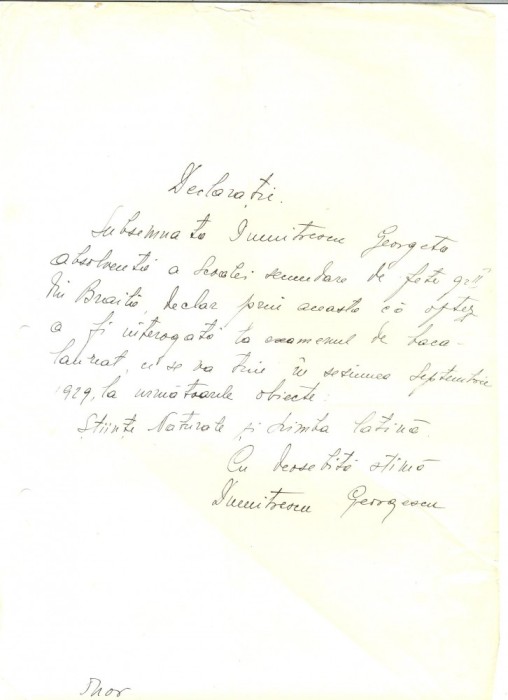 Declarație.
Subsemnata Dumitrescu Georgeta
absolventă a Școalei secundare de fete gr. II
din Braila, declar prin aceasta că optez
a fi interogată la examenul de baca-
laureat, ce se va ține în sesiunea Septembrie
1929, la următoarele obiecte:
Științe Naturale și Limba latină.
Cu deosebită stimă
Dumitrescu Georgescu